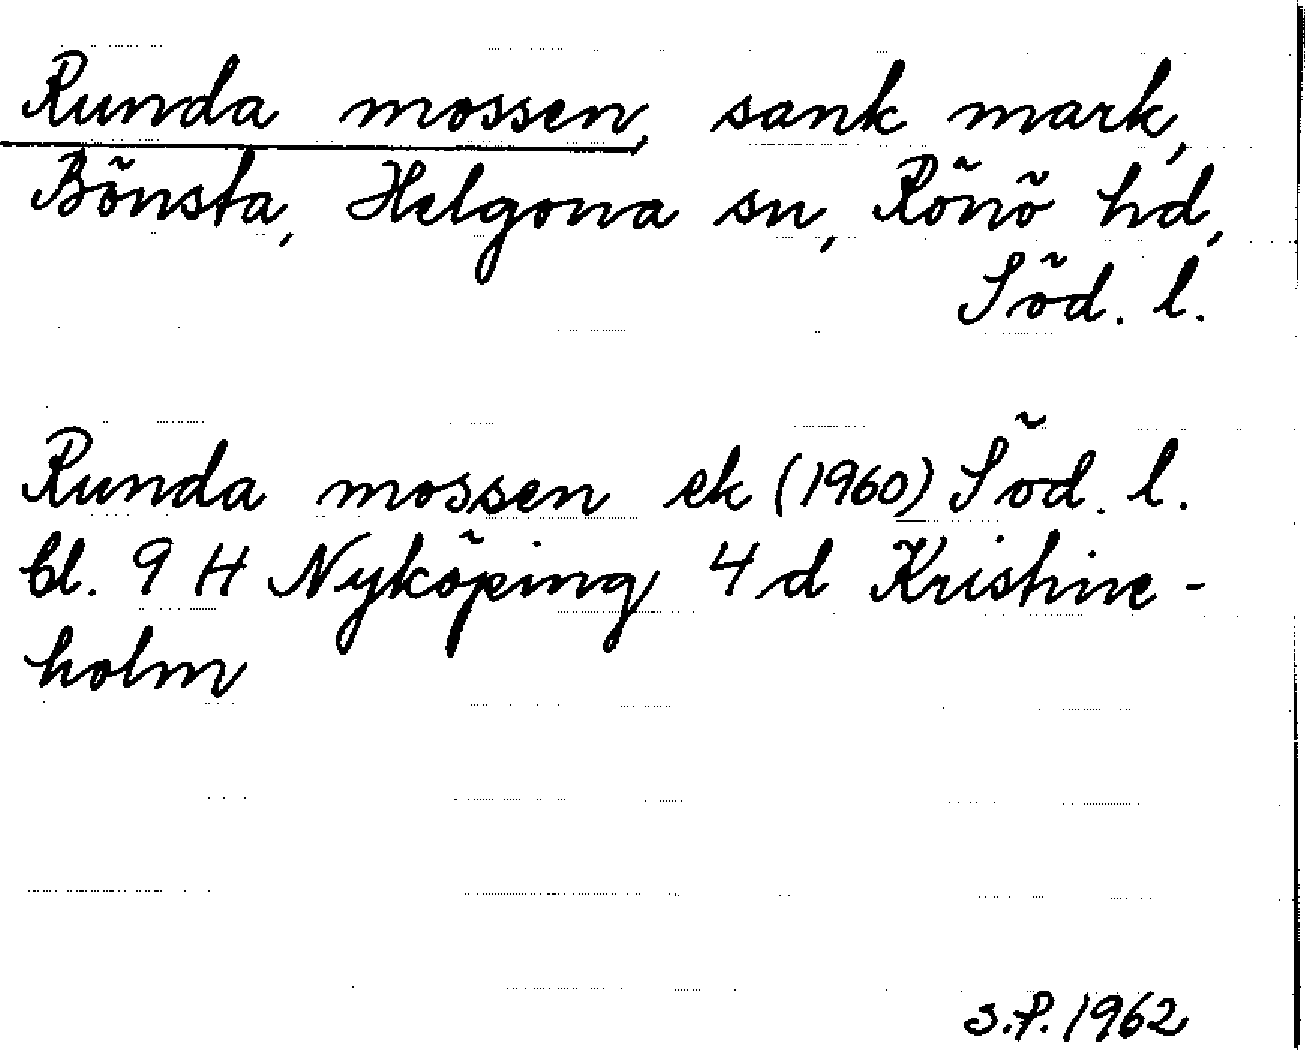 Runda mossen, sank mark,
Bönsta, Helgona sn, Rönö hd,
Söd. l.
Runda mossen ek (1960) Söd. l.
bl. 9 H Nyköping 4 d Kristine-
holm
S.P. 1962